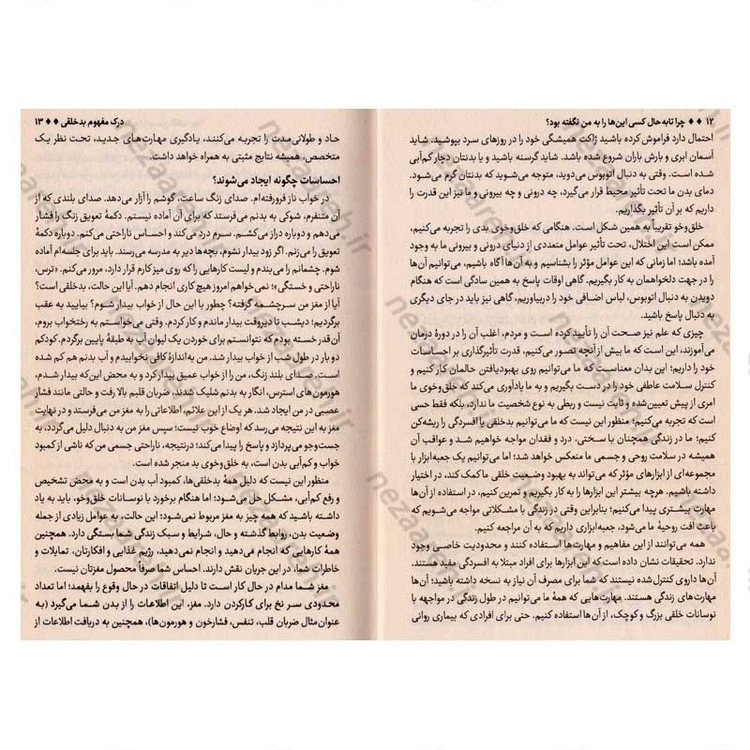 ۱۲ ♦♦ چرا تابه‌حال کسی این‌ها را به من نگفته بود؟
احتمال دارد فراموش کرده باشید ژاکت همیشگی خود را در روزهای سرد بپوشید. شاید
آسمان ابری و بارش باران شروع شده باشد. شاید گرسنه باشید و یا بدنتان دچار کم‌آبی
شده است. وقتی به دنبال اتوبوس می‌دوید، متوجه می‌شوید که بدنتان گرم می‌شود.
دمای بدن ما تحت تأثیر محیط قرار می‌گیرد، چه درونی و چه بیرونی و ما نیز این قدرت را
داریم که بر آن تأثیر بگذاریم.
خلق‌وخو تقریباً به همین شکل است. هنگامی که خلق‌وخوی بدی را تجربه می‌کنیم،
ممکن است این اختلال، تحت تأثیر عوامل متعددی از دنیای درونی و بیرونی ما به وجود
آمده باشد؛ اما زمانی که این عوامل مؤثر را بشناسیم و به آن‌ها آگاه باشیم، می‌توانیم آن‌ها
را در جهت دلخواهمان به کار بگیریم. گاهی اوقات پاسخ به همین سادگی است که هنگام
دویدن به دنبال اتوبوس، لباس اضافی خود را دربیاوریم، گاهی نیز باید در جای دیگری
به دنبال پاسخ باشید.
چیزی که علم نیز صحت آن را تأیید کرده است و مردم، اغلب آن را در دورهٔ درمان
می‌آموزند، این است که ما بیش از آنچه تصور می‌کنیم، قدرت تأثیرگذاری بر احساسات
خود را داریم؛ این بدان معناست که ما می‌توانیم روی بهبودیافتن حالمان کار کنیم و
کنترل سلامت عاطفی خود را در دست بگیریم و به ما یادآوری می‌کند که خلق‌وخوی ما
امری از پیش تعیین‌شده و ثابت نیست و ربطی به نوع شخصیت ما ندارد، بلکه فقط حسی
است که تجربه می‌کنیم؛ منظور این نیست که ما می‌توانیم بدخلقی یا افسردگی را ریشه‌کن
کنیم؛ ما در زندگی همچنان با سختی، درد و فقدان مواجه خواهیم شد و عواقب آن
همیشه در سلامت روحی و جسمی ما منعکس خواهد شد؛ اما می‌توانیم یک جعبه‌ابزار با
مجموعه‌ای از ابزارهای مؤثر که می‌تواند به بهبود وضعیت خلقی ما کمک کند، در اختیار
داشته باشیم. هرچه بیشتر این ابزارها را به کار بگیریم و تمرین کنیم، در استفاده از آن‌ها
مهارت بیشتری پیدا می‌کنیم؛ بنابراین وقتی در زندگی با مشکلاتی مواجه می‌شویم که
باعث افت روحیهٔ ما می‌شود، جعبه‌ابزاری داریم که به آن مراجعه کنیم.
همه می‌توانند از این مفاهیم و مهارت‌ها استفاده کنند و محدودیت خاصی وجود
ندارد. تحقیقات نشان داده است که این ابزارها برای افراد مبتلا به افسردگی مفید هستند.
آن‌ها داروی کنترل شده نیستند که شما برای مصرف آن نیاز به نسخه داشته باشید؛ آن‌ها
مهارت‌های زندگی هستند. مهارت‌هایی که همهٔ ما می‌توانیم در طول زندگی در مواجهه با
نوسانات خلقی بزرگ و کوچک، از آن‌ها استفاده کنیم. حتی برای افرادی که بیماری روانی
درک مفهوم بدخلقی ♦♦ ۱۳
حاد و طولانی‌مدت را تجربه می‌کنند، یادگیری مهارت‌های جدید، تحت نظر یک
متخصص، همیشه نتایج مثبتی به همراه خواهد داشت.
احساسات چگونه ایجاد می‌شوند؟
در خواب ناز فرورفته‌ام. صدای زنگ ساعت، گوشم را آزار می‌دهد. صدای بلندی که از
آن متنفرم، شوکی به بدنم می‌فرستد که برای آن آماده نیستم. دکمهٔ تعویق زنگ را فشار
می‌دهم و دوباره دراز می‌کشم. سرم درد می‌کند و احساس ناراحتی می‌کنم. دوباره دکمهٔ
تعویق را می‌زنم. اگر زود بیدار نشوم، بچه‌ها دیر به مدرسه می‌رسند. باید برای جلسه‌ام آماده
شوم. چشمانم را می‌بندم و لیست کارهایی را که روی میز کارم قرار دارد، مرور می‌کنم. «ترس،
ناراحتی و خستگی»؛ نمی‌خواهم امروز هیچ کاری انجام دهم. آیا این حالت، بدخلقی است؟
آیا از مغز من سرچشمه گرفته؟ چطور با این حال از خواب بیدار شوم؟ بیایید به عقب
برگردیم؛ دیشب تا دیروقت بیدار ماندم و کار کردم. وقتی می‌خواستم به رختخواب بروم،
آن‌قدر خسته بودم که نتوانستم برای خوردن یک لیوان آب به طبقهٔ پایین برگردم. کودکم
دو بار در طول شب از خواب بیدار شد. من به‌اندازهٔ کافی نخوابیدم و آب بدنم هم کم شده
است. صدای بلند زنگ، من را از خواب عمیق بیدار کرد و به محض این‌که بیدار شدم،
هورمون‌های استرس، انگار به بدنم شلیک شدند، ضربان قلبم بالا رفت و حالتی مانند فشار
عصبی در من ایجاد شد. هر یک از این علائم، اطلاعاتی را به مغز من می‌فرستد و در نهایت
مغز به این نتیجه می‌رسد که اوضاع خوب نیست؛ سپس مغز من به دنبال دلیل می‌گردد، به
جست‌وجو می‌پردازد و پاسخ را پیدا می‌کند؛ درنتیجه، ناراحتی جسمی من که ناشی از کمبود
خواب و کم آبی بدن است، به خلق‌وخوی بد منجر شده است.
منظور این نیست که دلیل همهٔ بدخلقی‌ها، کمبود آب بدن است و به محض تشخیص
و رفع کم‌آبی، مشکل حل می‌شود؛ اما هنگام برخورد با نوسانات خلق‌وخو، باید به یاد
داشته باشید که همه چیز به مغز مربوط نمی‌شود؛ این حالت، به عوامل زیادی از جمله
وضعیت بدن، روابط گذشته و حال، شرایط و سبک زندگی شما بستگی دارد. همچنین
همهٔ کارهایی که انجام می‌دهید و انجام نمی‌دهید، رژیم غذایی و افکارتان، تمایلات و
خاطرات شما، در این جریان نقش دارند. احساس شما صرفاً محصول مغزتان نیست.
مغز شما مدام در حال کار است تا دلیل اتفاقات در حال وقوع را بفهمد؛ اما تعداد
محدودی سر نخ برای کارکردن دارد. مغز، این اطلاعات را از بدن شما می‌گیرد (به
عنوان‌مثال ضربان قلب، تنفس، فشارخون و هورمون‌ها)، همچنین به دریافت اطلاعات از